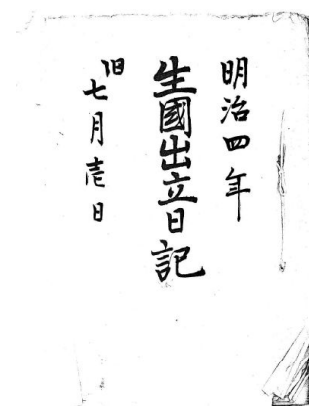 明治四年
生國出立日記
旧七月壱日